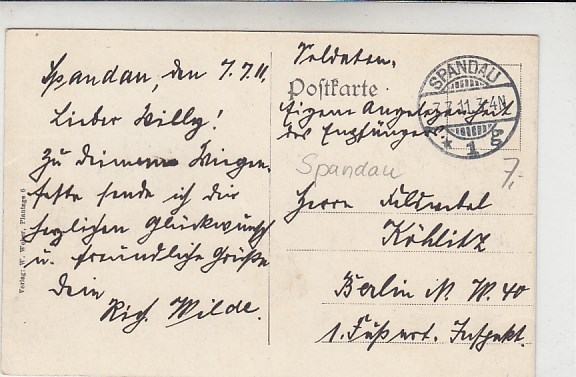 Spandau, den 7.7.11.
Lieber Willy!
Zu deinem Wiegen-
feste sende ich dir
herzlichen Glückwunsch
u. freundliche Grüße
Dein
Rich. Wilde.
Verlag: W. Weber, Plantage 6
Soldaten-
Postkarte
Eigene Angelegenheit
des Empfängers.
SPANDAU
7.7.11.3-4N
* 1 g
Spandau
7,-
Herrn Feldwebel
Köhlitz
Berlin N. W. 40
1. Fußart. Inspekt.